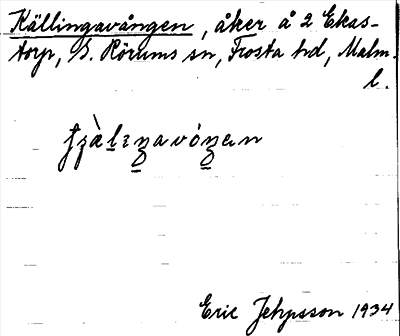 Källingavången, åker å 2 Ekas-
torp, S. Rörums sn, Frosta hd, Malm.
l.
Eric Jepsson 1934